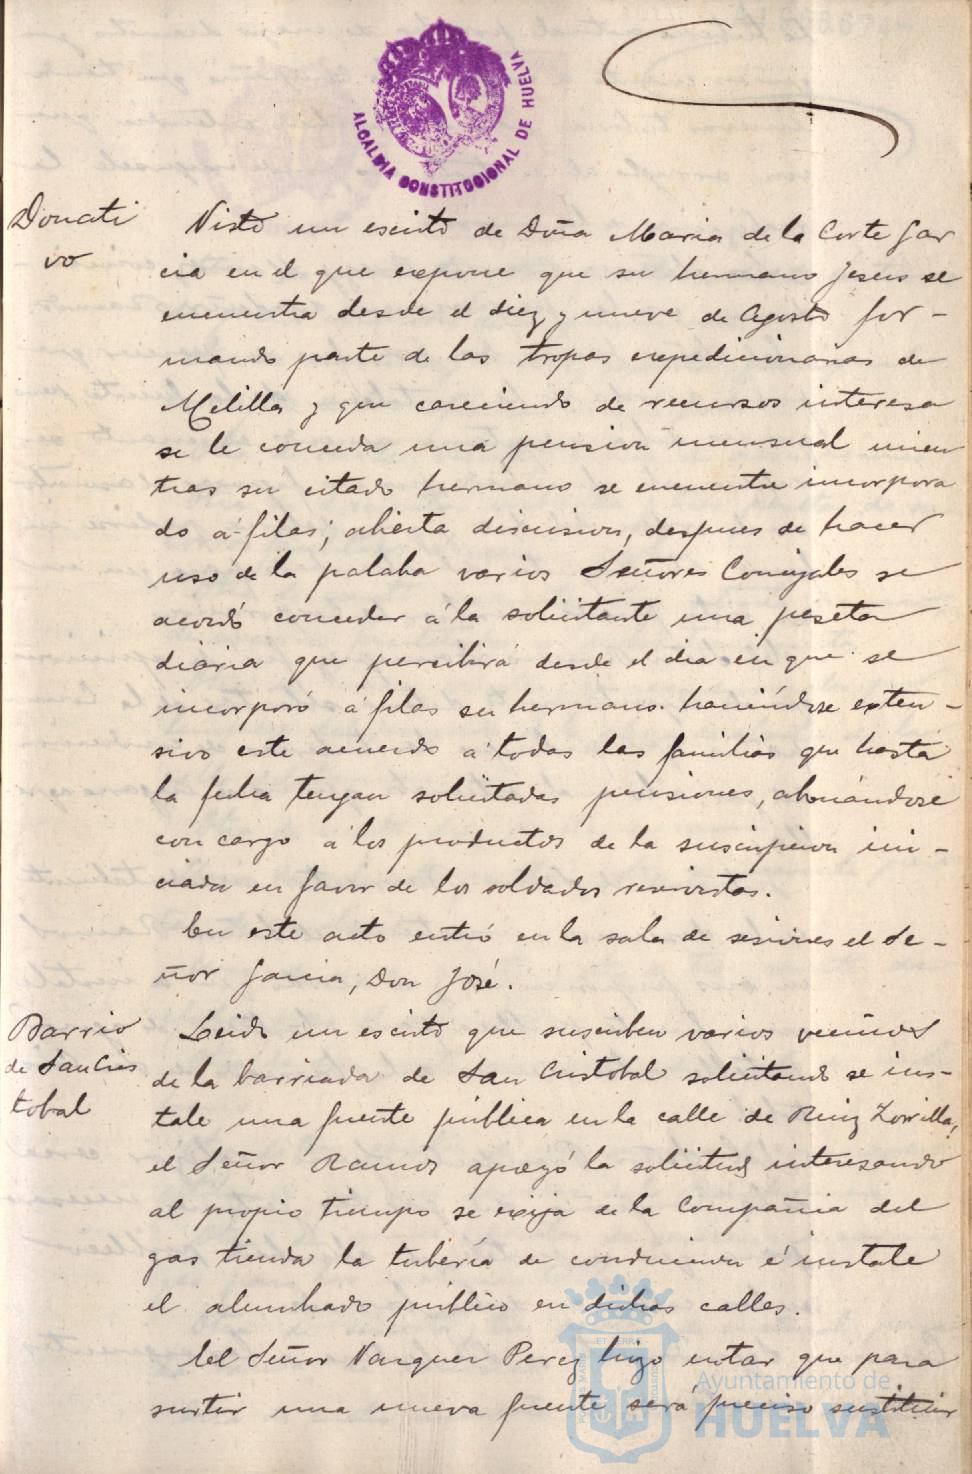 ALCALDIA CONSTITUCIONAL DE HUELVA
Donati
vo
Visto un escrito de Doña Maria de la Corte Gar
cia en el que expone que su hermano Jesus se
encuentra desde el diez y nueve de Agosto for-
mando parte de las tropas expedicionarias de
Melilla y que careciendo de recursos interesa
se le conceda una pension mensual mien
tras su citado hermano se encuentre incorpora
do á filas; abierta discusion, despues de hacer
uso de la palaba varios Señores Concejales se
acordó conceder á la solicitante una peseta
diaria que percibirá desde el dia en que se
incorporó á filas su hermano. haciéndose exten-
sivo este acuerdo á todas las familias que hasta
la fecha tengan solicitadas pensiones, abonándose
con cargo á los productos de la suscripcion ini-
ciada en favor de los soldados reservistas.
En este acto entró en la sala de sesiones el Se-
ñor Garcia, Don José.
Barrio
de San Cris
tobal
Leido un escrito que suscriben varios vecinos
de la barriada de San Cristobal solicitando se ins-
tale una fuente pública en la calle de Ruiz Zorrilla,
el Señor Ramos apoyó la solicitud interesando
al propio tiempo se exija de la Compañia del
gas tienda la tubería de conduccion é instale
el alumbrado publico en dichas calles.
El Señor Vazquez Perez hizo notar que para
surtir una nueva fuente será preciso sustituir
Ayuntamiento de
HUELVA